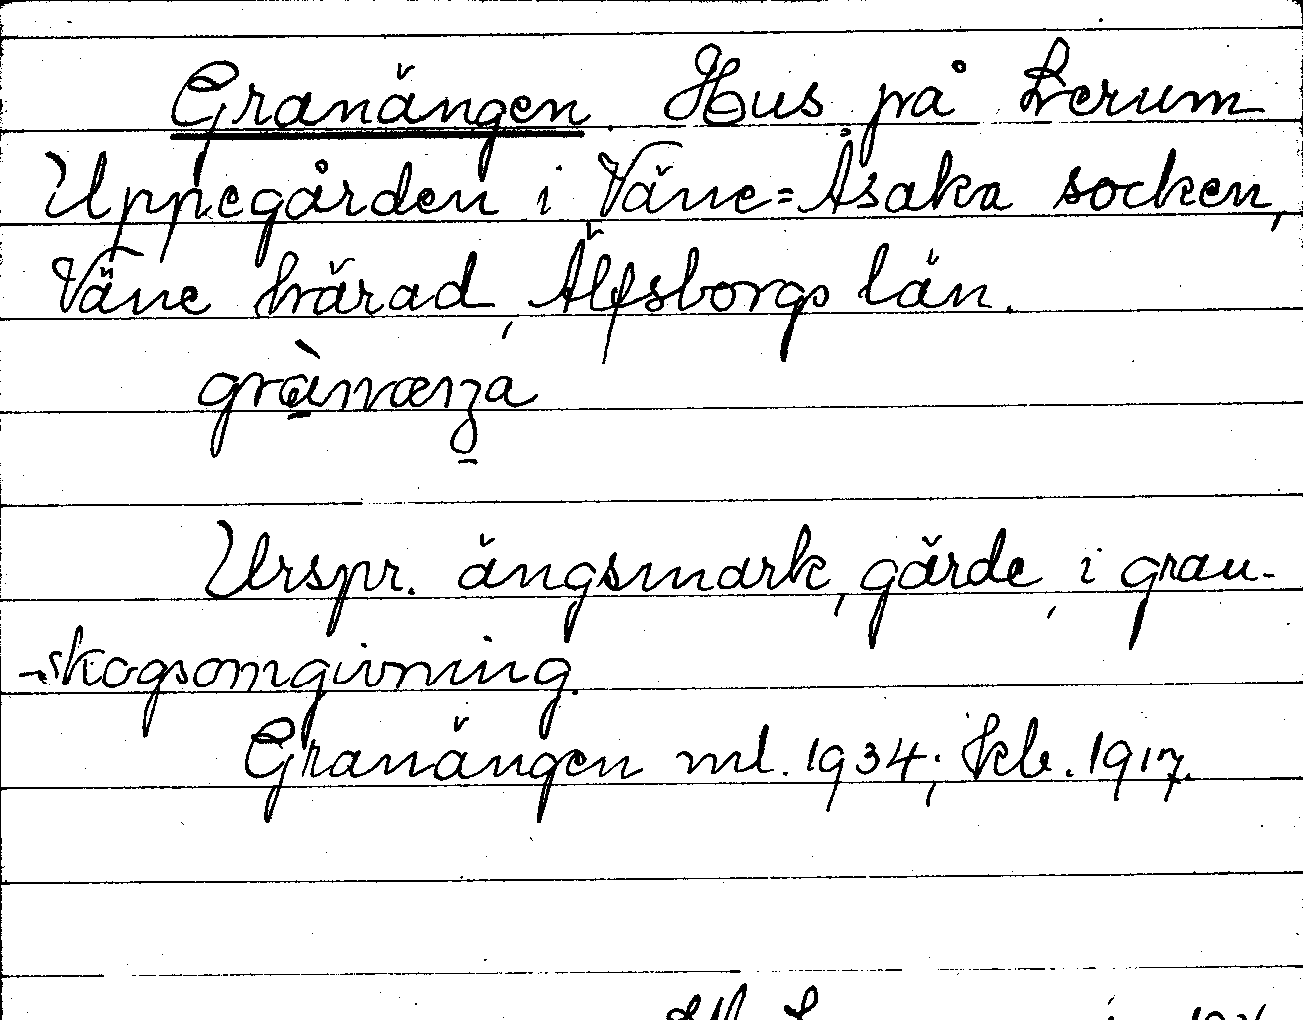 Granängen. Hus på Lerum
Uppegården i Väne=Åsaka socken,
Väne härad, Älfsborgs län.
grànæŋa
Urspr. ängsmark, gärde, i gran-
-skogsomgivning.
Granängen ml. 1934; kb. 1917.